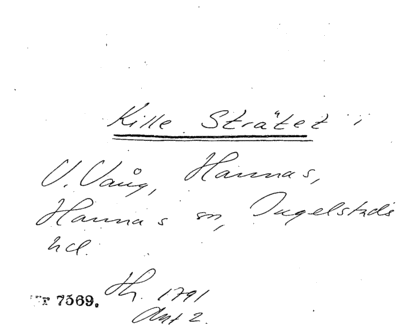 Kille Strätet i
V. Vång, Hannas,
Hannas sn, Ingelstads
hd.
7569. Th. 1791
Akt 2.